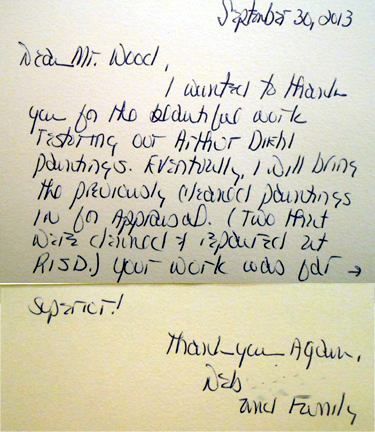 September 30, 2013
Dear Mr. Wood,
I wanted to thank
you for the beautiful work
restoring our Arthur Diehl
paintings. Eventually, I will bring
the previously cleaned paintings
in for Appraisal. (Two that
were cleaned & repaired at
RISD.) your work was far →
superior!
Thank you Again,
Deb
and Family